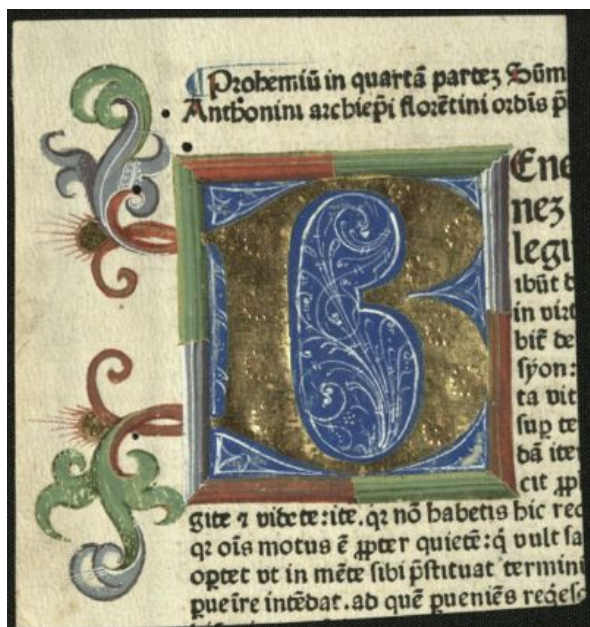 Prohemiū in quartā partez Sūm
Anthonini archiep̄i florētini ordīs p̄
B
Ene
nez
legi
ibūt d
in virt
bit̄ de
syon:
ta vit
sup te
dā ite
cit ꝓp
gite ⁊ videte: ite. qꝛ nō habetis hic req
qꝛ oīs motus ē ꝓpter quietē: q̄ vult sa
optet vt in mēte sibi p̄stituat termini
ꝑueīre intēdat. ad quē ꝑueniēs reqes